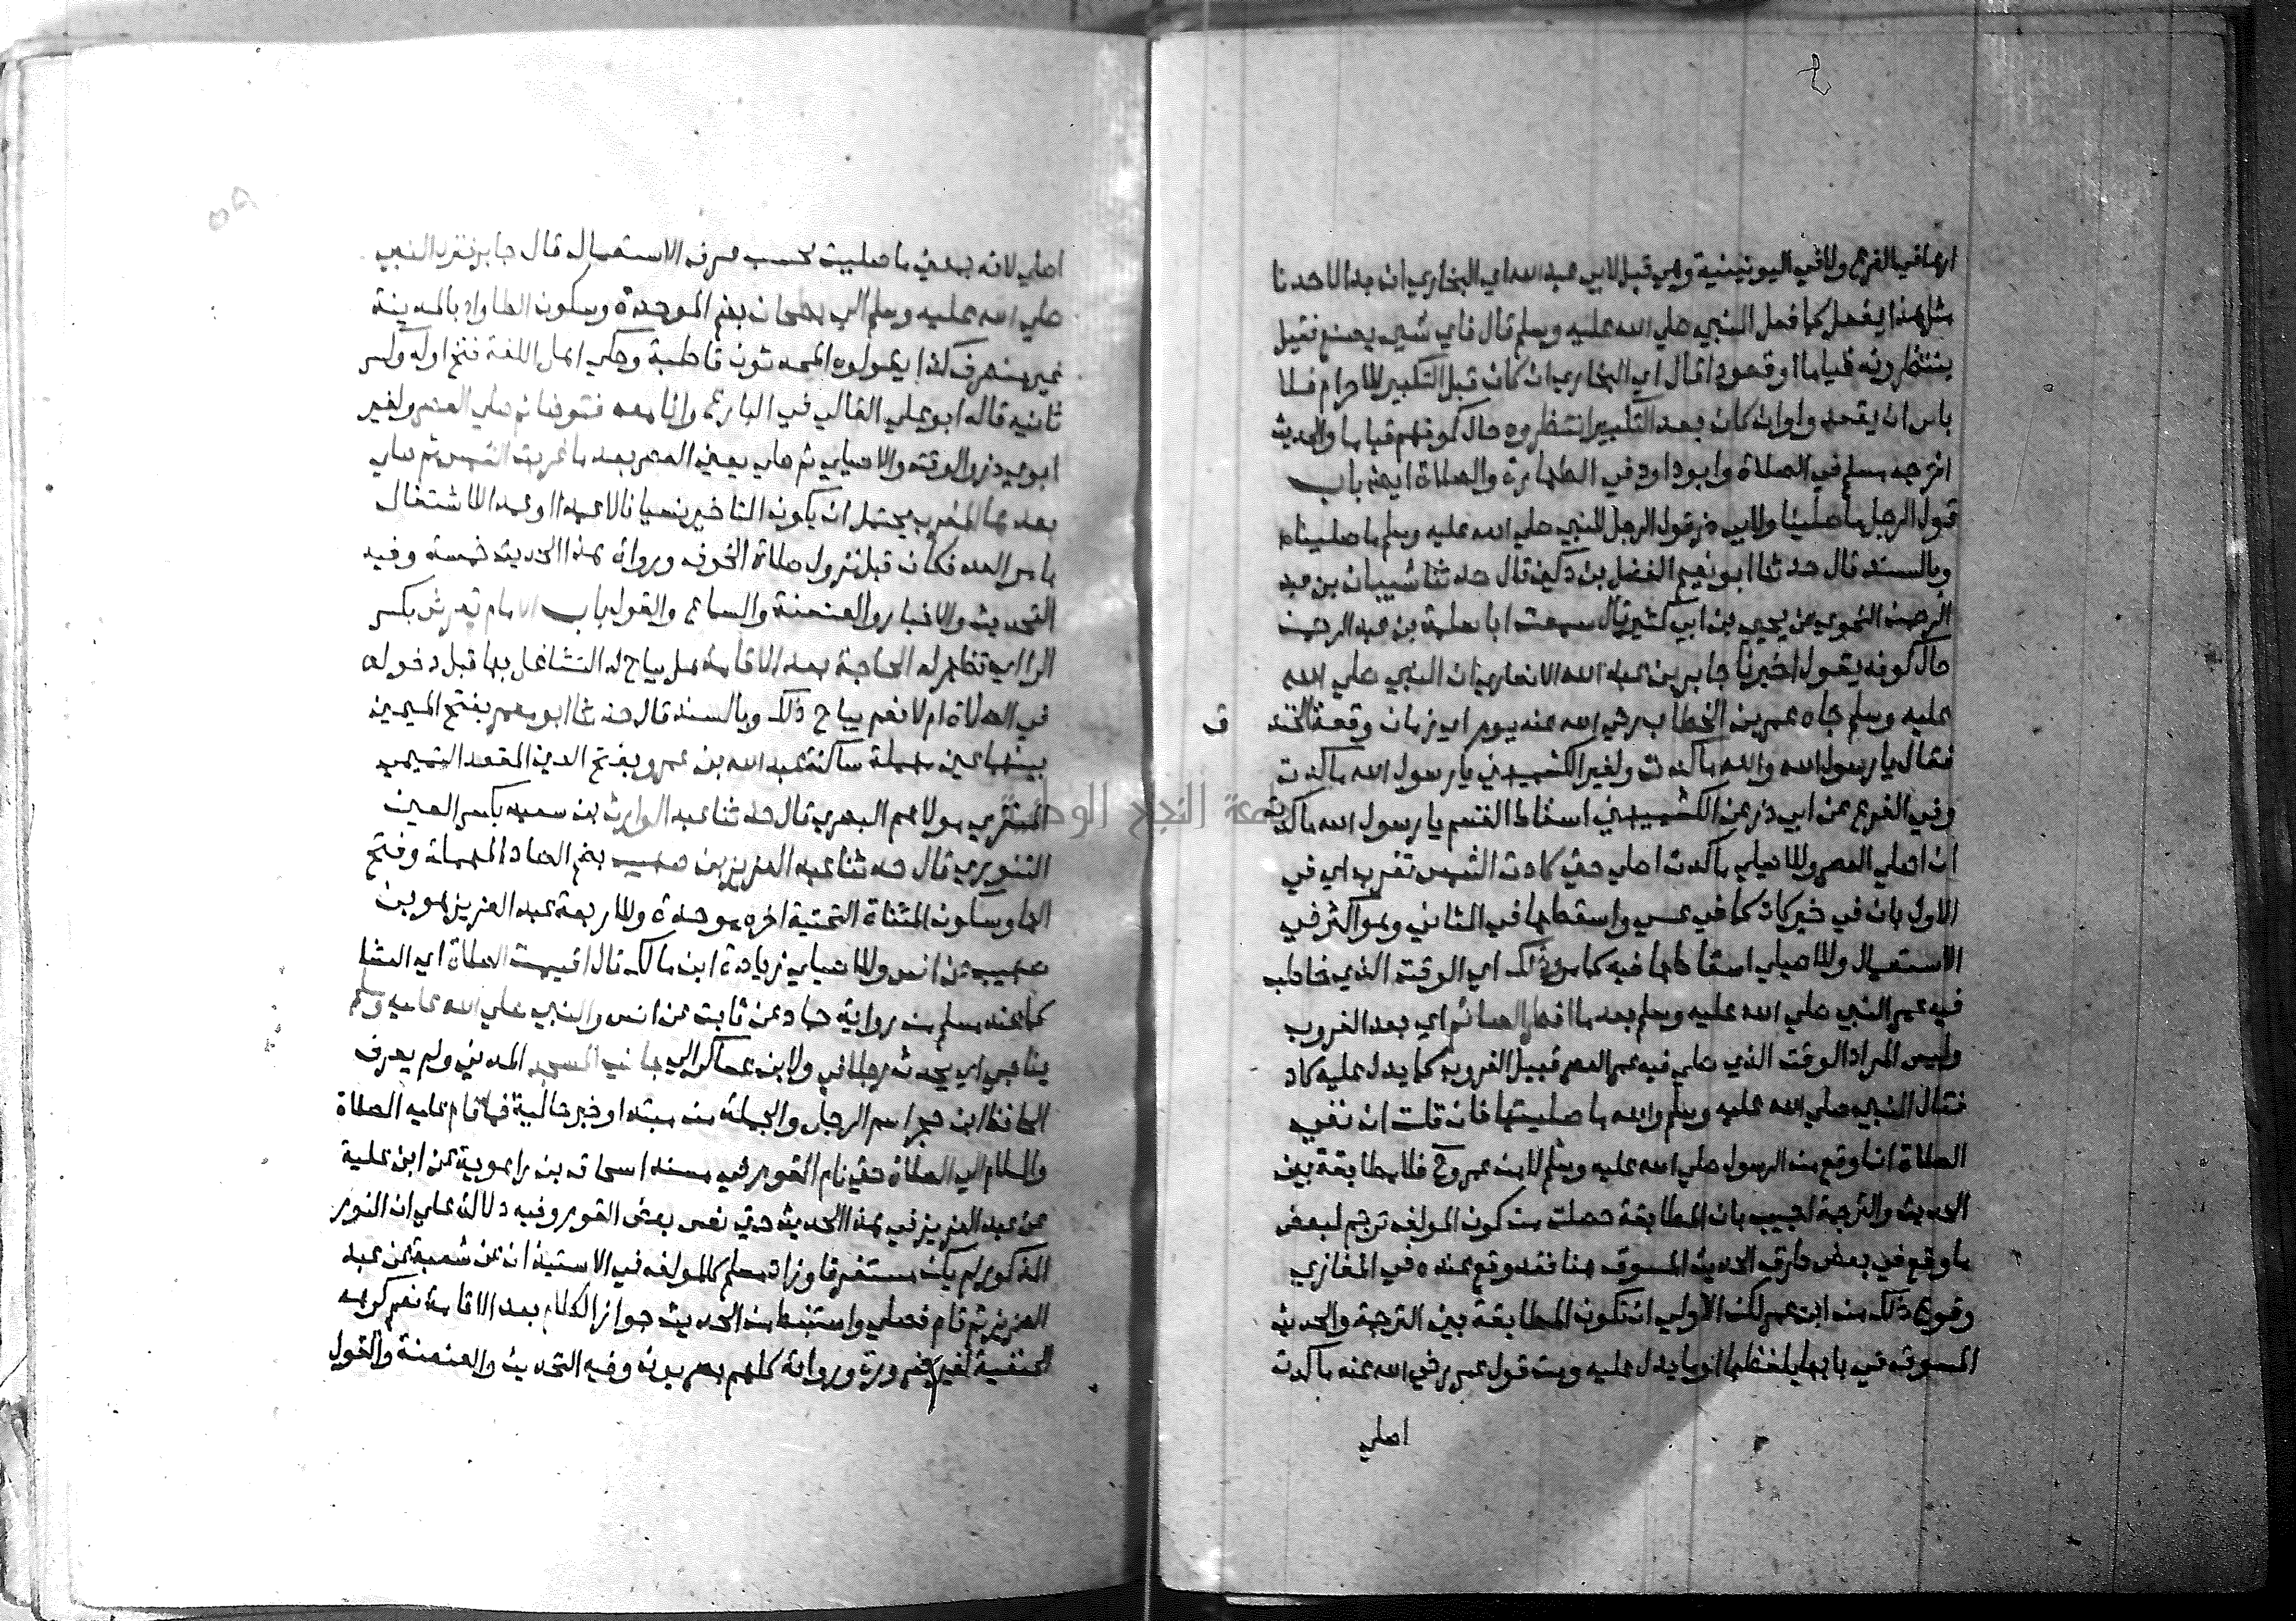 ارها في الفرع ولا في اليونينية وهي قيل لابي عبد الله اي البخاري ان بدا لاحدنا
مثل هذا يفعل كما فعل النبي صلي الله عليه وسلم قال فاي شي يصنع فقيل
ينتظرونه قياما او قعودا قال اي البخاري ان كان قبل التكبير للاحرام فلا
باس ان يقعدوا وان كان بعد التكبير انتظروه حال كونهم قياما والحديث
اخرجه مسلم في الصلاة وابو داود في الطهارة والصلاة ايضا باب
قول الرجل ما صلينا ولابي ذر قول الرجل للنبي صلي الله عليه وسلم ما صلينا
وبالسند قال حدثنا ابو نعيم الفضل بن دكين قال حدثنا شيبان بن عبد
الرحمن النحوي عن يحيي بن ابي كثير قال سمعت ابا سلمة بن عبد الرحمن
حال كونه يقول اخبرنا جابر بن عبد الله الانصاري ان النبي صلي الله
عليه وسلم جاه عمر بن الخطاب رضي الله عنه يوم اي زمان وقعة الخند ق
فقال يا رسول الله والله ما كدت ولغير الكشميهني يا رسول الله ما كدت
وفي الفرع عن ابي ذر عن الكشميهني اسقاط القسم يا رسول الله ما كدت
ان اصلي العصر وللاصيلي ما كدت اصلي حتي كادت الشمس تغرب اي في
الاول بان في خبر كاد كما في عسي واسقطها في الثاني وهو اكثر في
الاستعمال وللاصيلي اسقاطها فيه كما مر ذلك اي الوقت الذي خاطب
فيه عمر النبي صلي الله عليه وسلم بعد ما افطر الصائم اي بعد الغروب
وليس المراد الوقت الذي صلي فيه عمر العصر قبيل الغروب كما يدل عليه كاد
فقال النبي صلي الله عليه وسلم والله ما صليتها فان قلت ان نفي
الصلاة انما وقع من الرسول صلي الله عليه وسلم لا من عمر وح فلا مطابقة بين
الحديث والترجمة اجيب بان المطابقة حصلت من كون المولف ترجم لبعض
ما وقع في بعض طرق الحديث المسوق هنا فقد وقع عنده في المغازي
وقوع ذلك من ابن عمر لكن الاولي ان تكون المطابقة بين الترجمة والحديث
المسوق في بابها بلفظها او ما يدل عليه ومن قول عمر رضي الله عنه ما كدت
اصلي
اصلي لانه بمعني ما صليت بحسب عرف الاستعمال قال جابر فنزل النبي
صلي الله عليه وسلم الي بطحان بضم الموحدة وسكون الطا واد بالمدينة
غير منصرف كذا يقوله المحدثون قاطبة وحكي اهل اللغة فتح اوله وكسر
ثانيه قاله ابو علي القالي في البارع وانا معه فتوضا ثم صلي العصر ولغير
ابوي ذر والوقت والاصيلي ثم صلي يعني العصر بعد ما غربت الشمس ثم صلي
بعدها المغرب يحتمل ان يكون التاخير نسيانا لا عمدا او عمدا للاشتغال
بامر العدو فكان قبل نزول صلاة الخوف ورواة هذا الحديث خمسة وفيه
التحديث والاخبار والعنعنة والسماع والقول باب الامام تعرض بكسر
الرا اي تظهر له الحاجة بعد الاقامة هل يباح له التشاغل بها قبل دخوله
في الصلاة ام لا نعم يباح ذلك وبالسند قال حدثنا ابو معمر بفتح الميمين
بينهما عين مهملة ساكنة عبد الله بن عمرو بفتح العين المقعد التميمي
المنقري مولاهم البصري قال حدثنا عبد الوارث بن سعيد بكسر العين
التنوري قال حدثنا عبد العزيز بن صهيب بضم الصاد المهملة وفتح
الها وسكون المثناة التحتية اخره موحدة وللاربعة عبد العزيز هو بن
صهيب عن انس وللاصيلي زيادة ابن مالك قال اقيمت الصلاة اي العشا
كما عند مسلم من رواية حماد عن ثابت عن انس والنبي صلي الله عليه وسلم
يناجي اي يحدث رجلا في ولابن عساكر الي جانب المسجد المدني ولم يعرف
الحافظ ابن حجر اسم الرجل والجملة من مبتدا وخبر حالية فما قام عليه الصلاة
والسلام الي الصلاة حتي نام القوم في مسند اسحاق بن راهوية عن ابن علية
عن عبد العزيز في هذا الحديث حتي نعس بعض القوم وفيه دلالة علي ان النوم
المذكور لم يكن مستغرقا وزاد مسلم كالمولف في الاستيذان عن شعبة عن عبد
العزيز ثم قام فصلي واستنبط من الحديث جواز الكلام بعد الاقامة نعم كرهه
الحنفية لغير ضرورة ورواته كلهم بصريون وفيه التحديث والعنعنة والقول